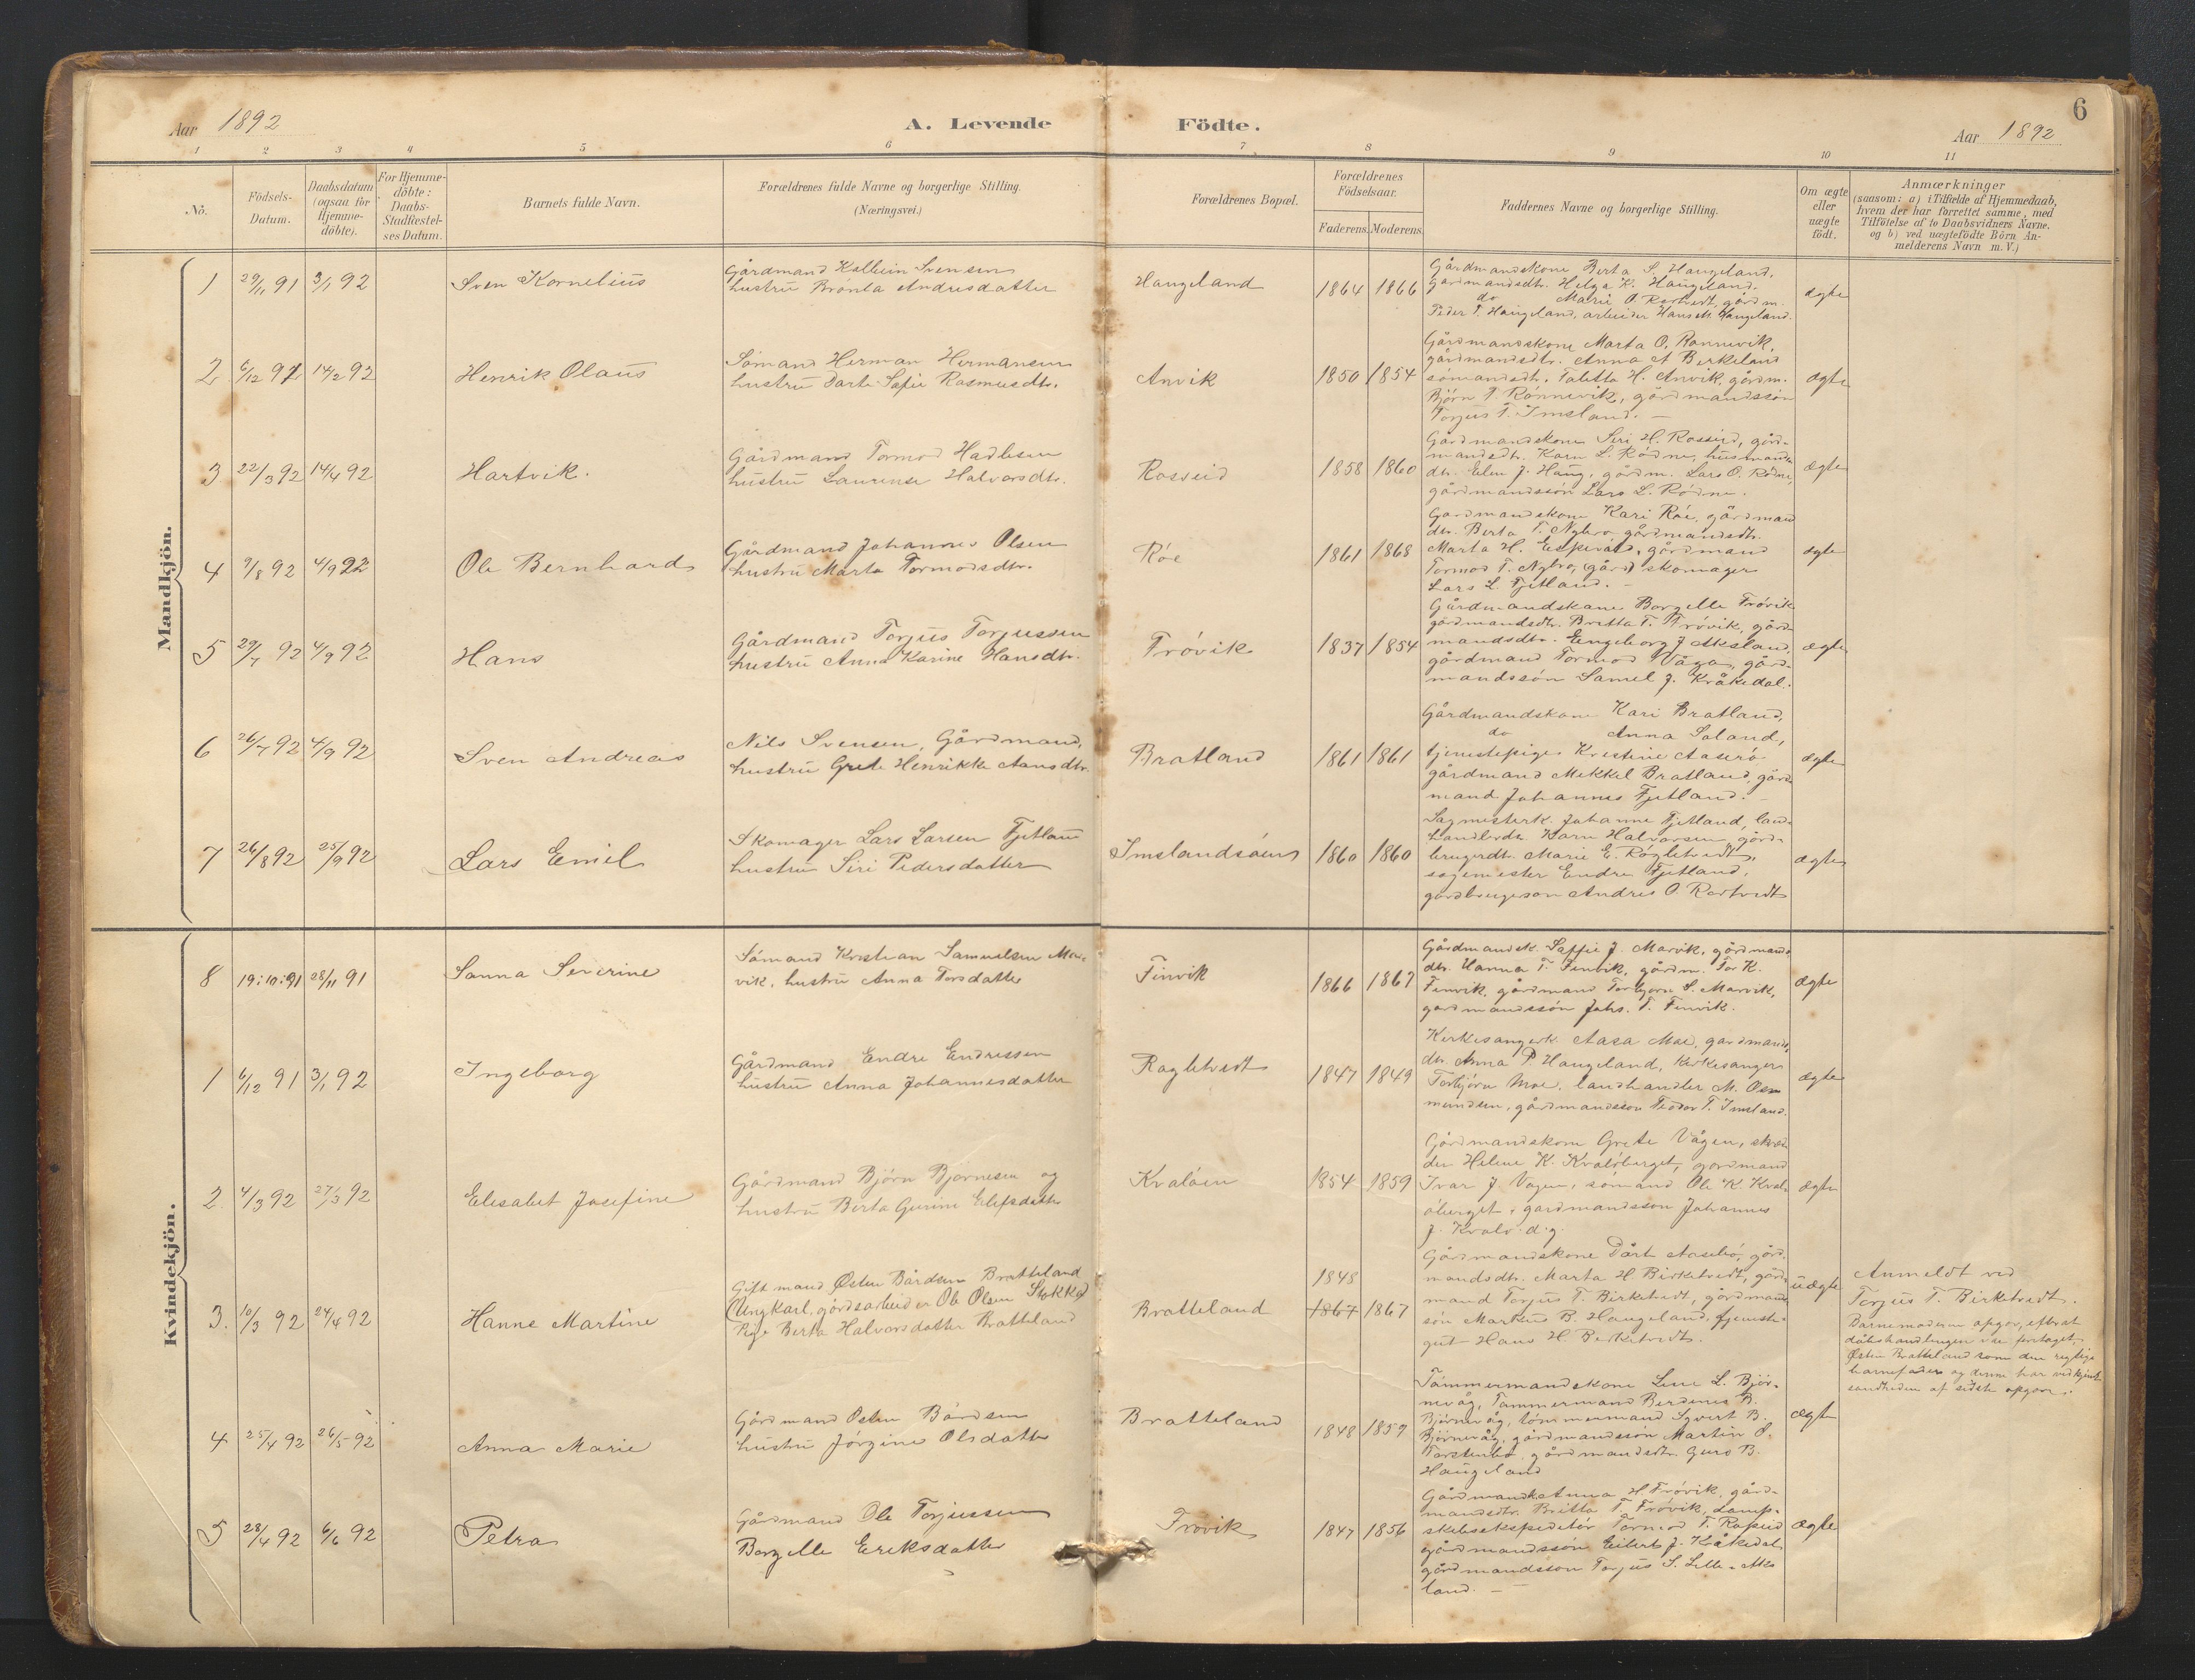 6
Aar 1892
A. Levende Födte.
Aar 1892
1 2 3 4 5 6 7 8 9 10 11
No.
Födsels-
Datum.
Daabsdatum
(ogsaa for
Hjemme-
döbte).
For Hjemme-
döbte:
Daabs-
Stadfæstel-
ses Datum.
Barnets fulde Navn.
Forældrenes fulde Navne og borgerlige Stilling.
(Næringsvei.)
Forældrenes Bopæl.
Forældrenes
Födselsaar.
Faderens. Moderens.
Faddernes Navne og borgerlige Stilling.
Om ægte
eller
uægte
födt.
Anmærkninger
(saasom: a) i Tilfælde af Hjemmedaab,
hvem der har forrettet samme, med
Tilföielse af to Daabsvidners Navne.
og b) ved uægtefödte Börn An-
melderens Navn m. V.)
Mandkjön.
1 29/11 91 3/1 92 Sven Kornelius
Gårdmand Kolbein Svensen
hustru Brónla Andrisdatter
Haugeland 1864 1866
Gårdmandskone Berta S. Haugeland,
gårdmandsdtr. Helga K. Haugeland.
do Marie O. gårdm.
Peder T. Haugeland, arbeider Hans M. Haugeland.
ægte
2 6/12 91 14/2 92 Henrik Olaus
Sömand Herman Hermansen
hustru Dorte Sofie Rasmusdtr.
Anvik 1850 1854
Gårdmandskone Marta O. Rønnevik,
gårdmandsdtr. Anna A Birkeland
sömandsdtr. Taletta H. Anvik, gårdm.
Björn T. Rönnevik, gårdmandssön
Torjus T. Imsland. —
ægte
3 22/3 92 14/4 92 Hartvik.
Gårdmand Tormod Hadlesen
hustru Laurense Halvorsdtr.
Rosseid 1858 1860
Gårdmandskone Siri H. Rosseid, gård-
mandsdtr. Karn L. Rödne, husmands
dtr. Elen J. Haug, gårdm. Lars O. Rödne,
gårdmandssön Lars L. Rödne.
ægte
4 9/8 92 4/9 92 Ole Bernhard
Gårdmand Johannes Olsen
hustru Marta Tormodsdtr.
Róe 1861 1868
Gårdmandskone Kari Róe, gårdmand
dtr. Berta T. Nybro, gårdmandsdtr.
Marta H. gårdmand
Tormod T. Nybro, (gård) skomager
Lars L. Fjetland. —
ægte
5 29/7 92 4/9 92 Hans
Gårdmand Torjus Torjussen
hustru Anna Karine Hansdtr.
Frövik 1837 1854
Gårdmandskone Borgelle Frövik
gårdmandsdtr. Britta T. Frövik, gård-
mandsdtr. Engeborg J Aksland,
gårdmand Tormod Våga, gård-
mandssön Samel J. Kråkedal.
ægte
6 26/7 92 4/9 92 Sven Andreas
Nils Svensen, Gårdmand,
hustru Grete Henrikke Aansdtr.
Bratland 1861 1861
Gårdmandskone Kari Bratland,
do Anna Saland,
tjenestepige Kristine Aaseró
gårdmand Mekkel Bratland, gård
mand Johannes Fjetland. —
ægte
7 26/8 92 25/9 92 Lars Emil
Skomager Lars Larsen Fjetland
hustru Siri Pedersdatter
Imslandsóen 1860 1860
Sagmesterk. Johanne Fjetland, land-
handlerdtr Karn Halvorsen, gård-
brugerdtr. Marie E. Rögletvedt,
sagemester Endre Fjetland,
gårdbrugerson Andris O.
ægte
8 19:10:91 28/11 91 Sanna Severine
Sömand Kristian Samuelsen Mar-
vik, hustru Anna Torsdatter
Finvik 1866 1867
Gårdmandsk. Soffie J. Marvik, gårdmands
dtr. Hanna T. Finvik, gårdm. Tor K.
Finvik, gårdmand Torbjørn S. Marvik,
gardmandssön Johs. T. Finvik.
ægte
Kvindekjön.
1 6/12 91 3/1 92 Ingeborg
Gårdmand Endre Endressen
hustru Anna Johannesdatter
Ragletvedt 1847 1849
Kirkesangerk. Aasa Moe, gardmands
dtr. Anna P. Haugeland, kirkesanger
Torbjörn Moe, landhandler M. Osm
mundsen, gårdmandsson Teodor T. Imsland.
ægte
2 4/3 92 27/3 92 Elisabet Josefine
Gårdmand Björn Bjørnesen og
hustru Berta Gurine Elefsdatter
Kvalóen 1854 1859
Gårdmandskone Grete Vågen,
der Helene K. Kvalöberget, gardmand
Ivar J. Vagen, sömand Ole K. Kval-
óberget, gardmandsson Johannes
J. Kvalv. d. y.
ægte
3. 10/3 92 24/4 92 Hanne Martine
Gift mand Østen Bårdsen Bratteland
(Ungkarl, gårdsarbeider Ole Olsen Stokka)
Pige Berta Halvorsdatter Bratteland
Bratteland 1848 1867 1867
Gårdmandskone Dårte Aasebó, gård-
mandsdtr. Marta H Birketvedt, gård-
mand Torjus T. Birketvedt, gårdmands
sön Martin B. Haugeland, tjeneste-
gut Hans H Birketvedt.
uægte
Anmeldt ved
Torjus T. Birketvedt.
Barnemoderen opgav, efterat
dåbshandlingen var foretaget,
Østen Bratteland som den rigtige
barnefader og denne har vedkjent
sandheden af sidste opgave.
4 25/4 92 26/5 92 Anna Marie
Gårdmand Østen Bårdsen
hustru Jörgine Olsdatter
Bratteland 1848 1859
Tömmermandskone Lene L. Björ-
nevåg, Tømmermand Berdines B.
Björnevåg, tömmermand Syvert B.
Björnevåg, gårdmandssön Martin O.
gårdmandsdtr. Guro B.
Haugeland
ægte
5 28/4 92 6/6 92 Petra
Gårdmand Ole Torjussen
Borgelle Eriksdatter
Frövik 1847 1856
Gårdmandsk Anna H. Frövik, gård-
mandsdtr. Britta T. Frövik, damp-
skibsekspeditör Tormod T. Ropeid
gårdmandssön Eilert J. Kråkedal
gårdmandsson Torjus S. Lille-Aks
land. —
ægte